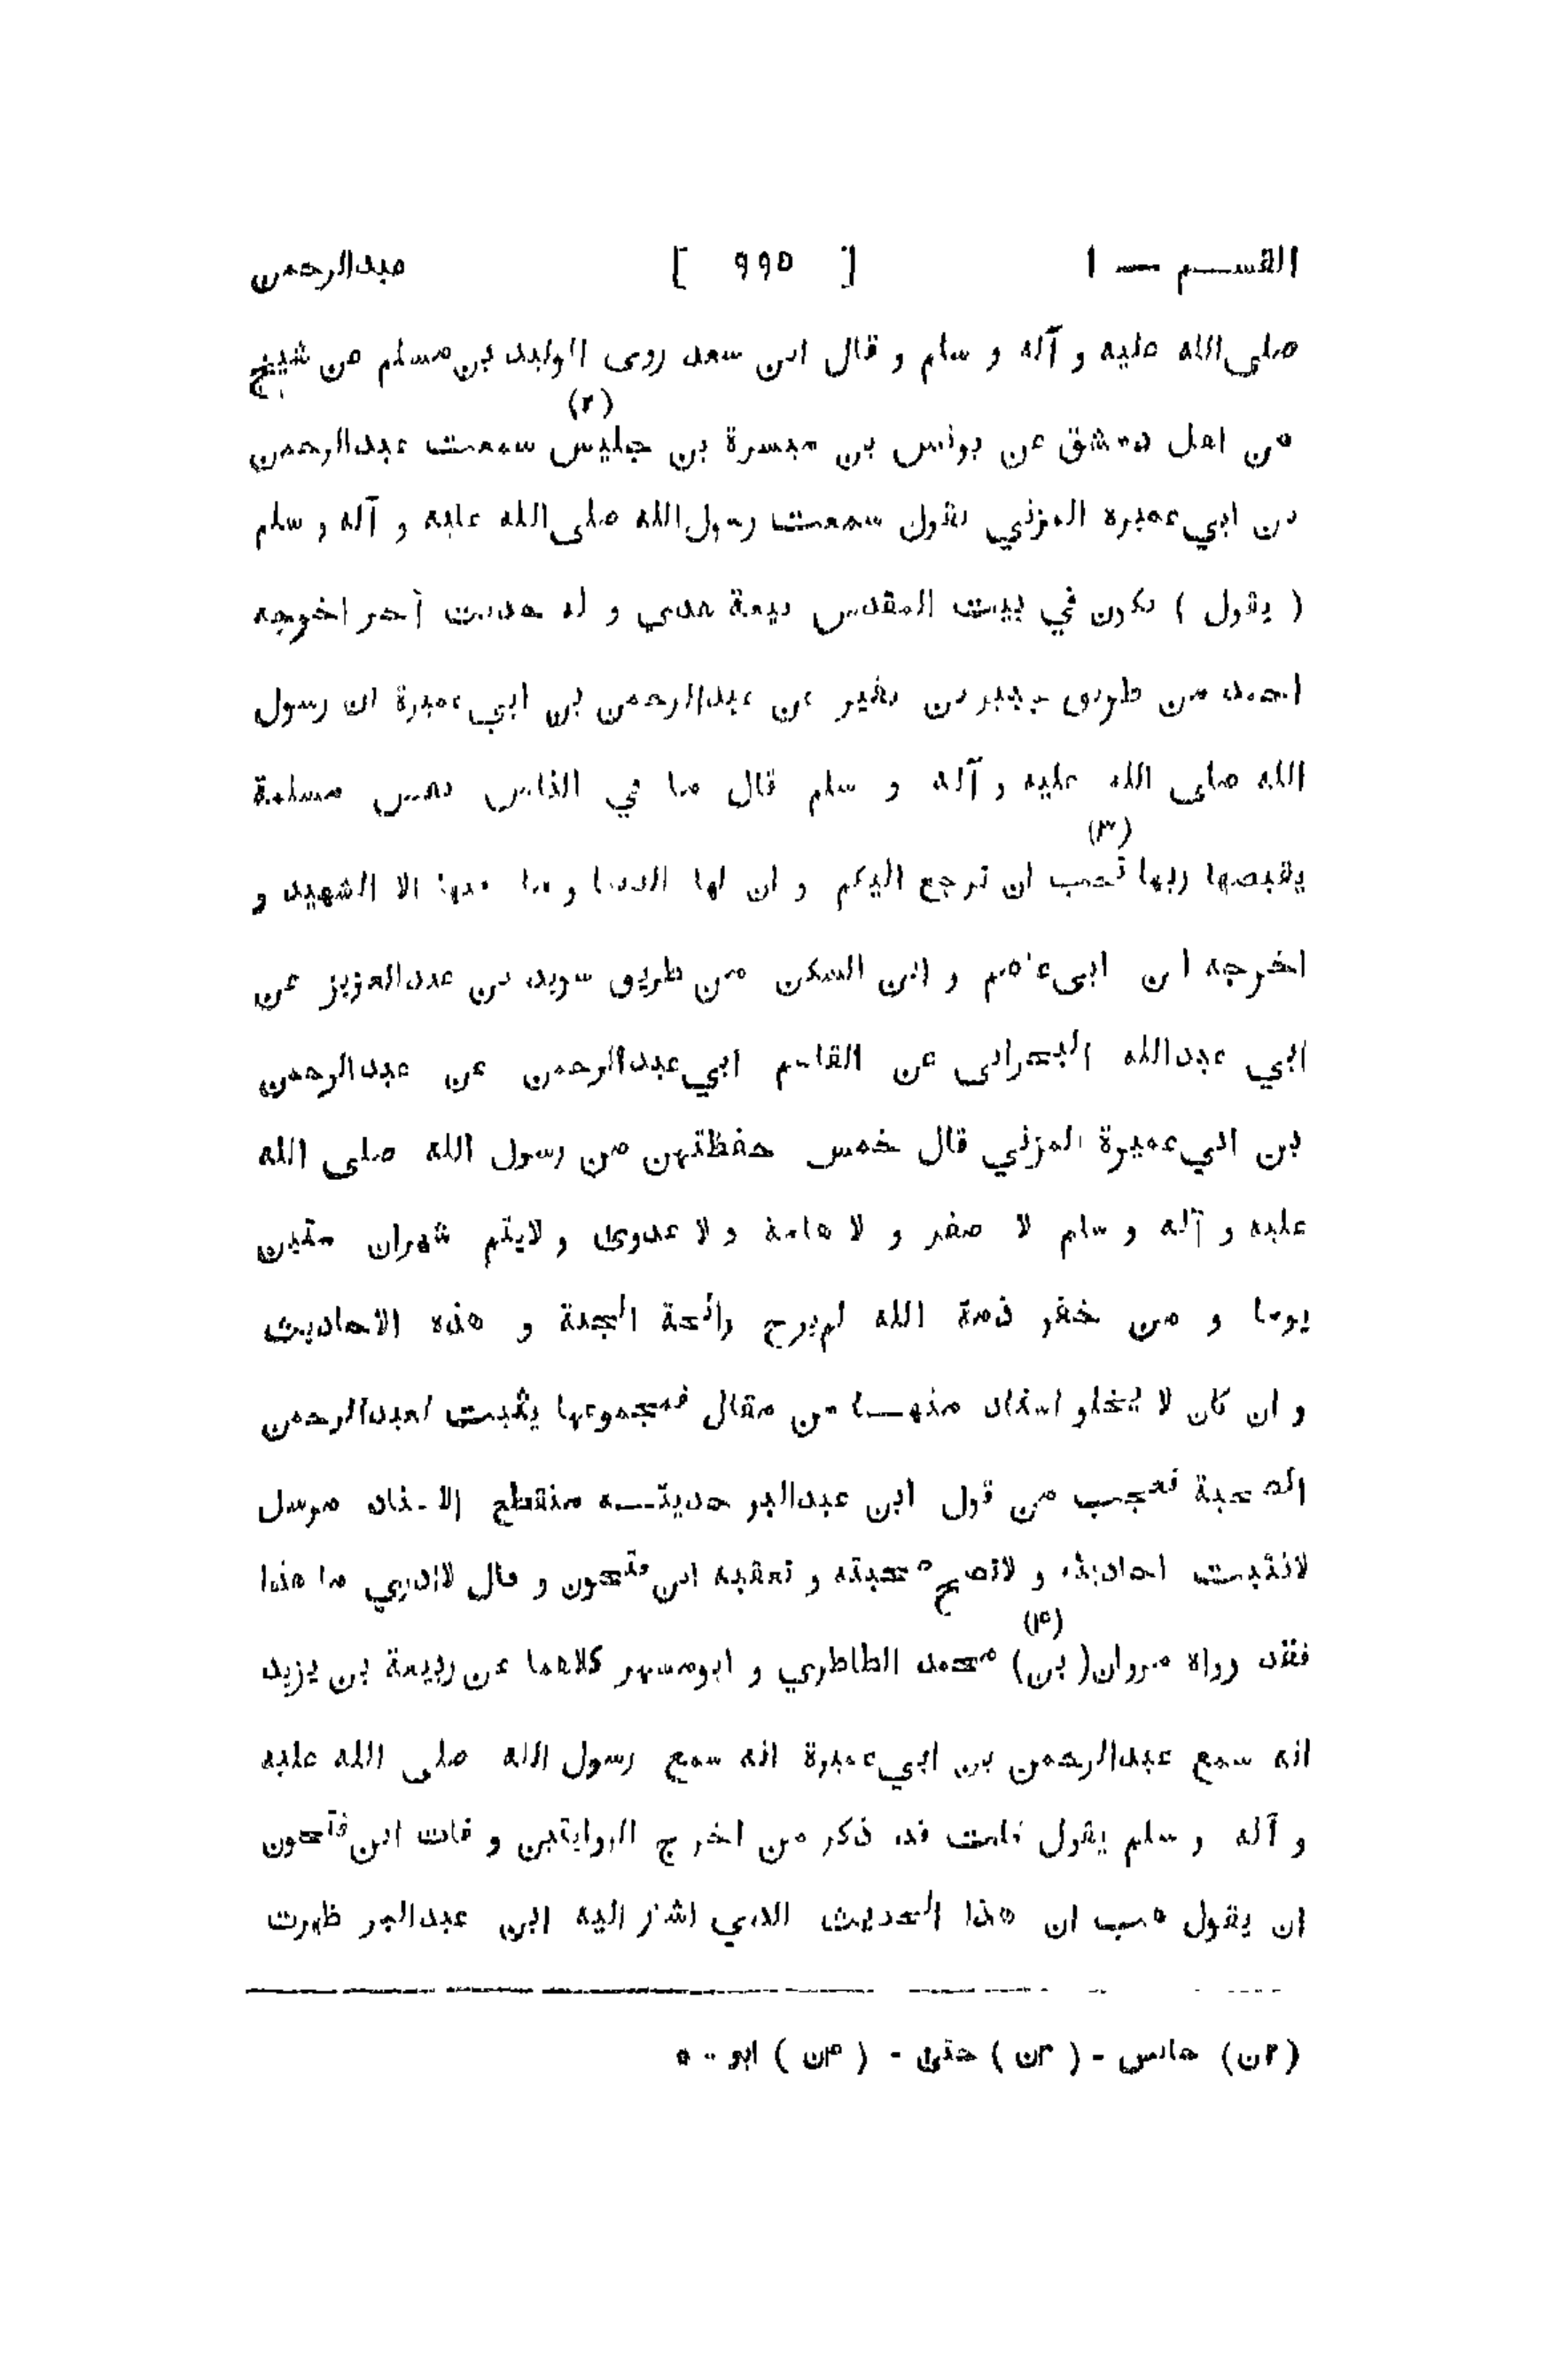 القسم — ١ [ ٩٩٥ ] عبدالرحمن
صلى الله عليه و آله و سلم و قال ابن سعد روى الوليد بن مسلم عن شيخ
(٢)
من اهل دمشق عن يونس بن ميسرة بن جليس سمعت عبدالرحمن
بن ابي عميرة المزني يقول سمعت رسول الله صلى الله عليه و آله و سلم
( يقول ) يكون في بيت المقدس بيعة هدي و له حديث آخر اخرجه
احمد من طريق جبير بن نفير عن عبدالرحمن بن ابي عميرة ان رسول
الله صلى الله عليه و آله و سلم قال ما في الناس نفس مسلمة
(٣)
يقبضها ربها تحب ان ترجع اليكم و ان لها الدنيا و ما فيها الا الشهيد و
اخرجه ابن ابي عاصم و ابن السكن من طريق سويد بن عبدالعزيز عن
ابي عبدالله البحراني عن القاسم ابي عبدالرحمن عن عبدالرحمن
بن ابي عميرة المزني قال خمس حفظتهن من رسول الله صلى الله
عليه و آله و سلم لا صفر و لا هامة و لا عدوى و لايتم شهران ستين
يوما و من خفر ذمة الله لم يرح رائحة الجنة و هذه الاحاديث
و ان كان لا يخلو اسناد منها من مقال فمجموعها يثبت لعبدالرحمن
الصحبة فعجب من قول ابن عبدالبر حديثه منقطع الاسناد مرسل
لاتثبت احاديثه و لاتصح صحبته و تعقبه ابن فتحون و قال لاادري ما هذا
(۴)
فقد رواه مروان ( بن ) محمد الطاطري و ابومسهر كلاهما عن ربيعة بن يزيد
انه سمع عبدالرحمن بن ابي عميرة انه سمع رسول الله صلى الله عليه
و آله و سلم يقول قلت قد ذكر من اخرج الروايتين و فات ابن فتحون
ان يقول هب ان هذا الحديث الذي اشار اليه ابن عبدالبر ظهرت
(٢ن) حابس - ( ٣ن ) حتى - ( ۴ن ) ابو - *